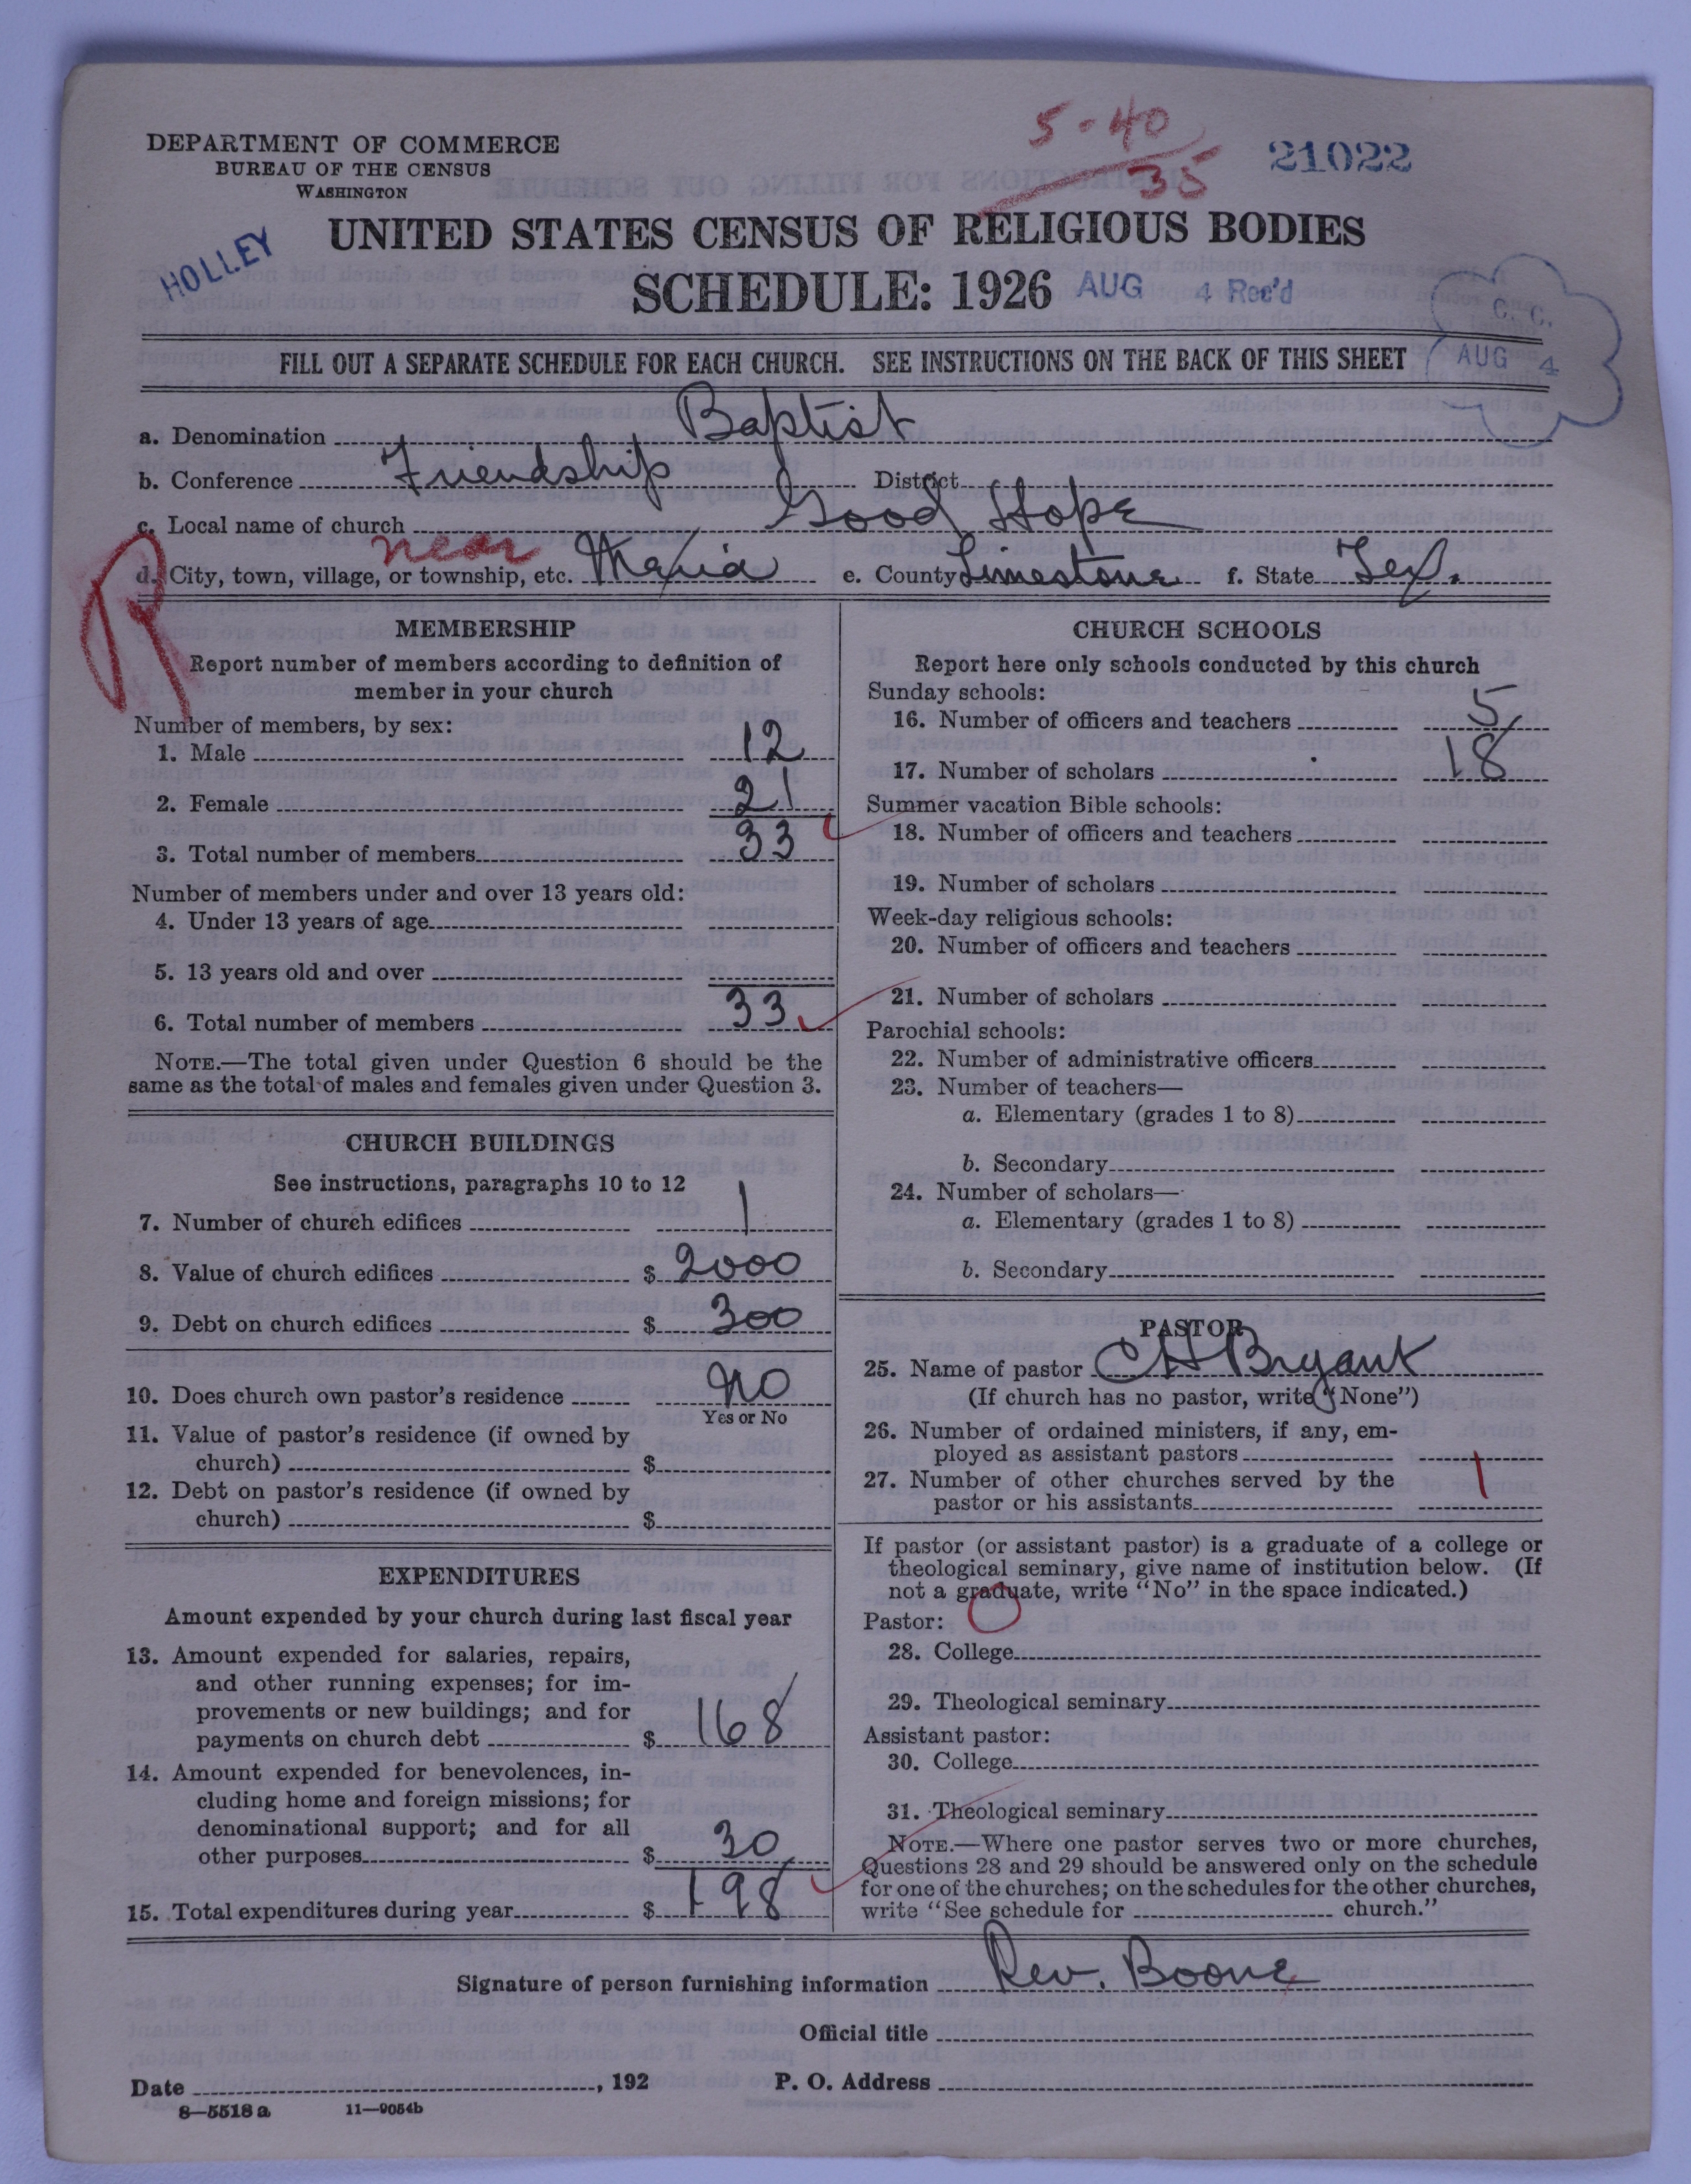 5-40
35
21022
DEPARTMENT OF COMMERCE
BUREAU OF THE CENSUS
WASHINGTON
HOLLEY
UNITED STATES CENSUS OF RELIGIOUS BODIES
SCHEDULE: 1926 AUG 4 Rec'd
C. C.
AUG 4
FILL OUT A SEPARATE SCHEDULE FOR EACH CHURCH. SEE INSTRUCTIONS ON THE BACK OF THIS SHEET
a. Denomination Baptist
b. Conference Friendship District
c. Local name of church Good Hope
R
d. City, town, village, or township, etc. near Mexia e. County Limestone f. State Tex.
MEMBERSHIP
Report number of members according to definition of
member in your church
Number of members, by sex:
1. Male 12
2. Female 21
3. Total number of members 33
Number of members under and over 13 years old:
4. Under 13 years of age
5. 13 years old and over
6. Total number of members 33
NOTE.—The total given under Question 6 should be the
same as the total of males and females given under Question 3.
CHURCH BUILDINGS
See instructions, paragraphs 10 to 12
7. Number of church edifices 1
8. Value of church edifices $ 2000
9. Debt on church edifices $ 300
10. Does church own pastor's residence no
Yes or No
11. Value of pastor's residence (if owned by
church) $
12. Debt on pastor's residence (if owned by
church) $
EXPENDITURES
Amount expended by your church during last fiscal year
13. Amount expended for salaries, repairs,
and other running expenses; for im-
provements or new buildings; and for
payments on church debt $ 168
14. Amount expended for benevolences, in-
cluding home and foreign missions; for
denominational support; and for all
other purposes $ 30
15. Total expenditures during year $ 198
CHURCH SCHOOLS
Report here only schools conducted by this church
Sunday schools:
16. Number of officers and teachers 5
17. Number of scholars 18
Summer vacation Bible schools:
18. Number of officers and teachers
19. Number of scholars
Week-day religious schools:
20. Number of officers and teachers
21. Number of scholars
Parochial schools:
22. Number of administrative officers
23. Number of teachers—
a. Elementary (grades 1 to 8)
b. Secondary
24. Number of scholars—
a. Elementary (grades 1 to 8)
b. Secondary
PASTOR
25. Name of pastor CH Bryant
(If church has no pastor, write "None")
26. Number of ordained ministers, if any, em-
ployed as assistant pastors
27. Number of other churches served by the
pastor or his assistants 1
If pastor (or assistant pastor) is a graduate of a college or
theological seminary, give name of institution below. (If
not a graduate, write "No" in the space indicated.)
Pastor: O
28. College
29. Theological seminary
Assistant pastor:
30. College
31. Theological seminary
NOTE.—Where one pastor serves two or more churches,
Questions 28 and 29 should be answered only on the schedule
for one of the churches; on the schedules for the other churches,
write "See schedule for church."
Signature of person furnishing information Rev. Boone
Official title
Date , 192 P. O. Address
8—5518 a 11—9054b